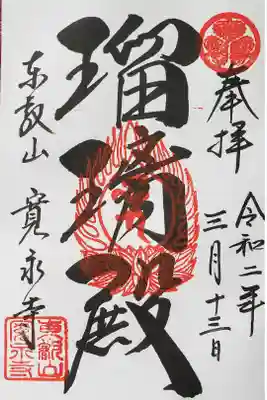 奉拝
令和二年
三月十三日
瑠璃殿
東叡山
寛永寺
東叡山
寛永寺